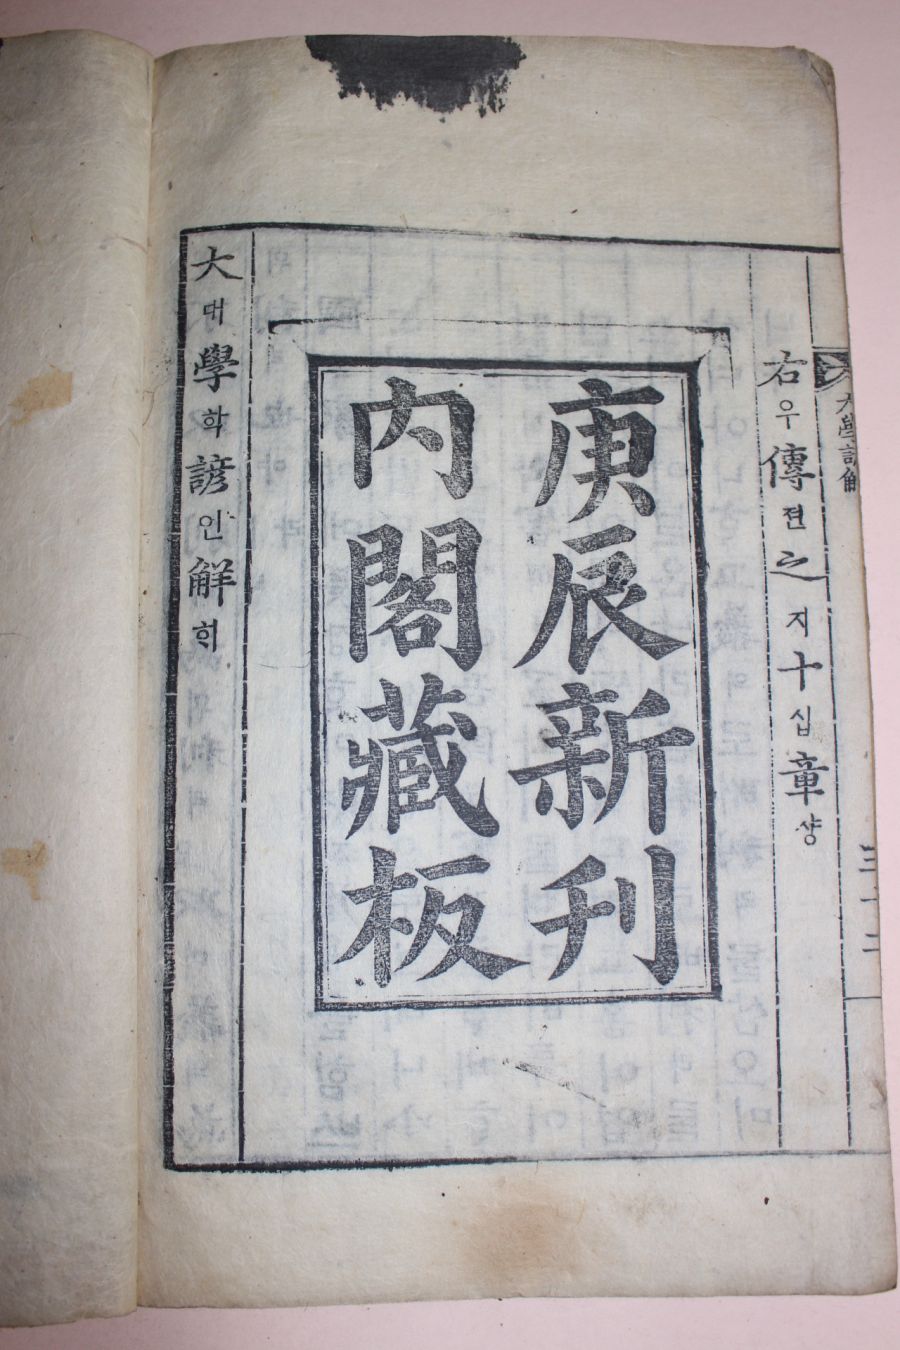 大學諺解
三十二
右우傳젼之지十십章샹
庚辰新刊
內閣藏板
大대學학諺인解ᄒᆡ